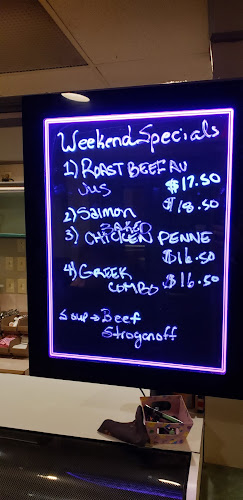 Weekend Specials
1) ROAST BEEF AU
JUS $17.50
2) Salmon $18.50
BAKED
3) CHICKEN PENNE
$16.50
4) GREEK
COMBO $16.50
Soup → Beef
Stroganoff